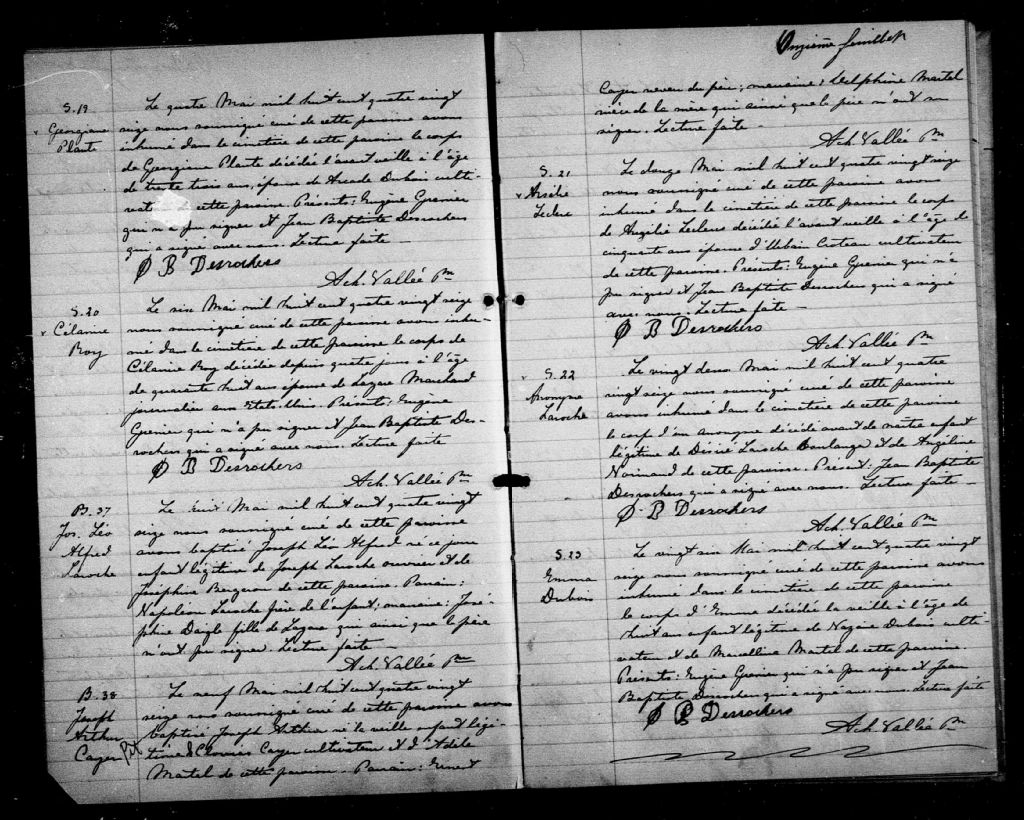 S. 19
Georgianne
Plante
Le quatre Mai mil huit cent quatre vingt
seize nous soussigné curé de cette paroisse avons
inhumé dans le cimetière de cette paroisse le corps
de Georgianne Plante décédée l'avant veille à l'âge
de trente trois ans, épouse de Arcade Dubois culti-
vateur cette paroisse. Présents: Eugène Grenier
qui n'a pu signer et Jean Baptiste Desrochers
qui a signé avec nous. Lecture faite -
J B Desrochers
Ach. Vallée Ptre
S. 20
Célanire
Roy
Le six Mai mil huit cent quatre vingt seize
nous soussigné curé de cette paroisse avons inhu-
mé dans le cimetière de cette paroisse le corps de
Célanire Roy décédée depuis quatre jours à l'âge
de quarante huit ans épouse de Lazare Marchand
journalier aux Etats-Unis. Présents: Eugène
Grenier qui n'a pu signer et Jean Baptiste Des-
rochers qui a signé avec nous. Lecture faite
J B Desrochers
Ach. Vallée Ptre
B. 37
Jos. Léo
Alfred
Laroche
Le huit Mai mil huit cent quatre vingt
seize nous soussigné curé de cette paroisse
avons baptisé Joseph Léo Alfred né ce jour
enfant légitime de Joseph Laroche ouvrier et de
Joséphine Bergeron de cette paroisse. Parrain:
Napoléon Laroche frère de l'enfant; marraine: José-
phine Daigle fille de Lazare qui ainsi que le père
n'ont pu signer. Lecture faite -
Ach. Vallée Ptre
B. 38
Joseph
Arthur
Cayer
Le neuf Mai mil huit cent quatre vingt
seize nous soussigné curé de cette paroisse avons
baptisé Joseph Arthur né la veille enfant légi-
time de Cayer cultivateur et d'Adèle
Martel de cette paroisse. Parrain: Ernest
Onzième feuillet
Cayer neveu du père; marraine: Delphine Martel
nièce de la mère qui ainsi que le père n'ont su
signer. Lecture faite -
Ach. Vallée Ptre
S. 21
Leclerc
Le douze Mai mil huit cent quatre vingt seize
nous soussigné curé de cette paroisse avons
inhumé dans le cimetière de cette paroisse le corps
de Leclerc décédée l'avant veille à l'âge de
cinquante ans épouse d'Urbain Croteau cultivateur
de cette paroisse. Présents: Eugène Grenier qui n'a
pu signer et Jean Baptiste Desrochers qui a signé
avec nous. Lecture faite -
J B Desrochers
Ach. Vallée Ptre
S. 22
Anonyme
Laroche
Le vingt deux Mai mil huit cent quatre
vingt seize nous soussigné curé de cette paroisse
avons inhumé dans le cimetière de cette paroisse
le corps d'un anonyme décédé avant de naître enfant
légitime de Désiré Laroche boulanger et de Angéline
Normand de cette paroisse. Présent: Jean Baptiste
Desrochers qui a signé avec nous. Lecture faite -
J. B Desrochers
Ach. Vallée Ptre
S. 23
Emma
Dubois
Le vingt six Mai mil huit cent quatre vingt
seize nous soussigné curé de cette paroisse avons
inhumé dans le cimetière de cette paroisse
le corps d'Emma décédée la veille à l'âge de
huit ans enfant légitime de Nazaire Dubois culti-
vateur et de Marcelline Martel de cette paroisse.
Présents: Eugène Grenier qui n'a pu signer et Jean
Baptiste Desrochers qui a signé avec nous. Lecture faite
J B Desrochers
Ach. Vallée Ptre